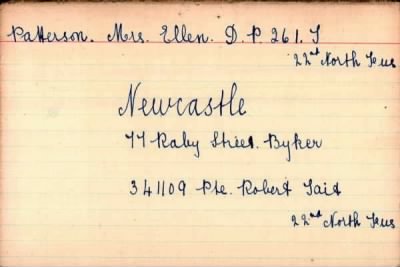 Patterson. Mrs. Ellen. D. P. 261. T
22nd North Fus
Newcastle
77 Raby Street. Byker
341109 Pte. Robert Tait
22nd North Fus